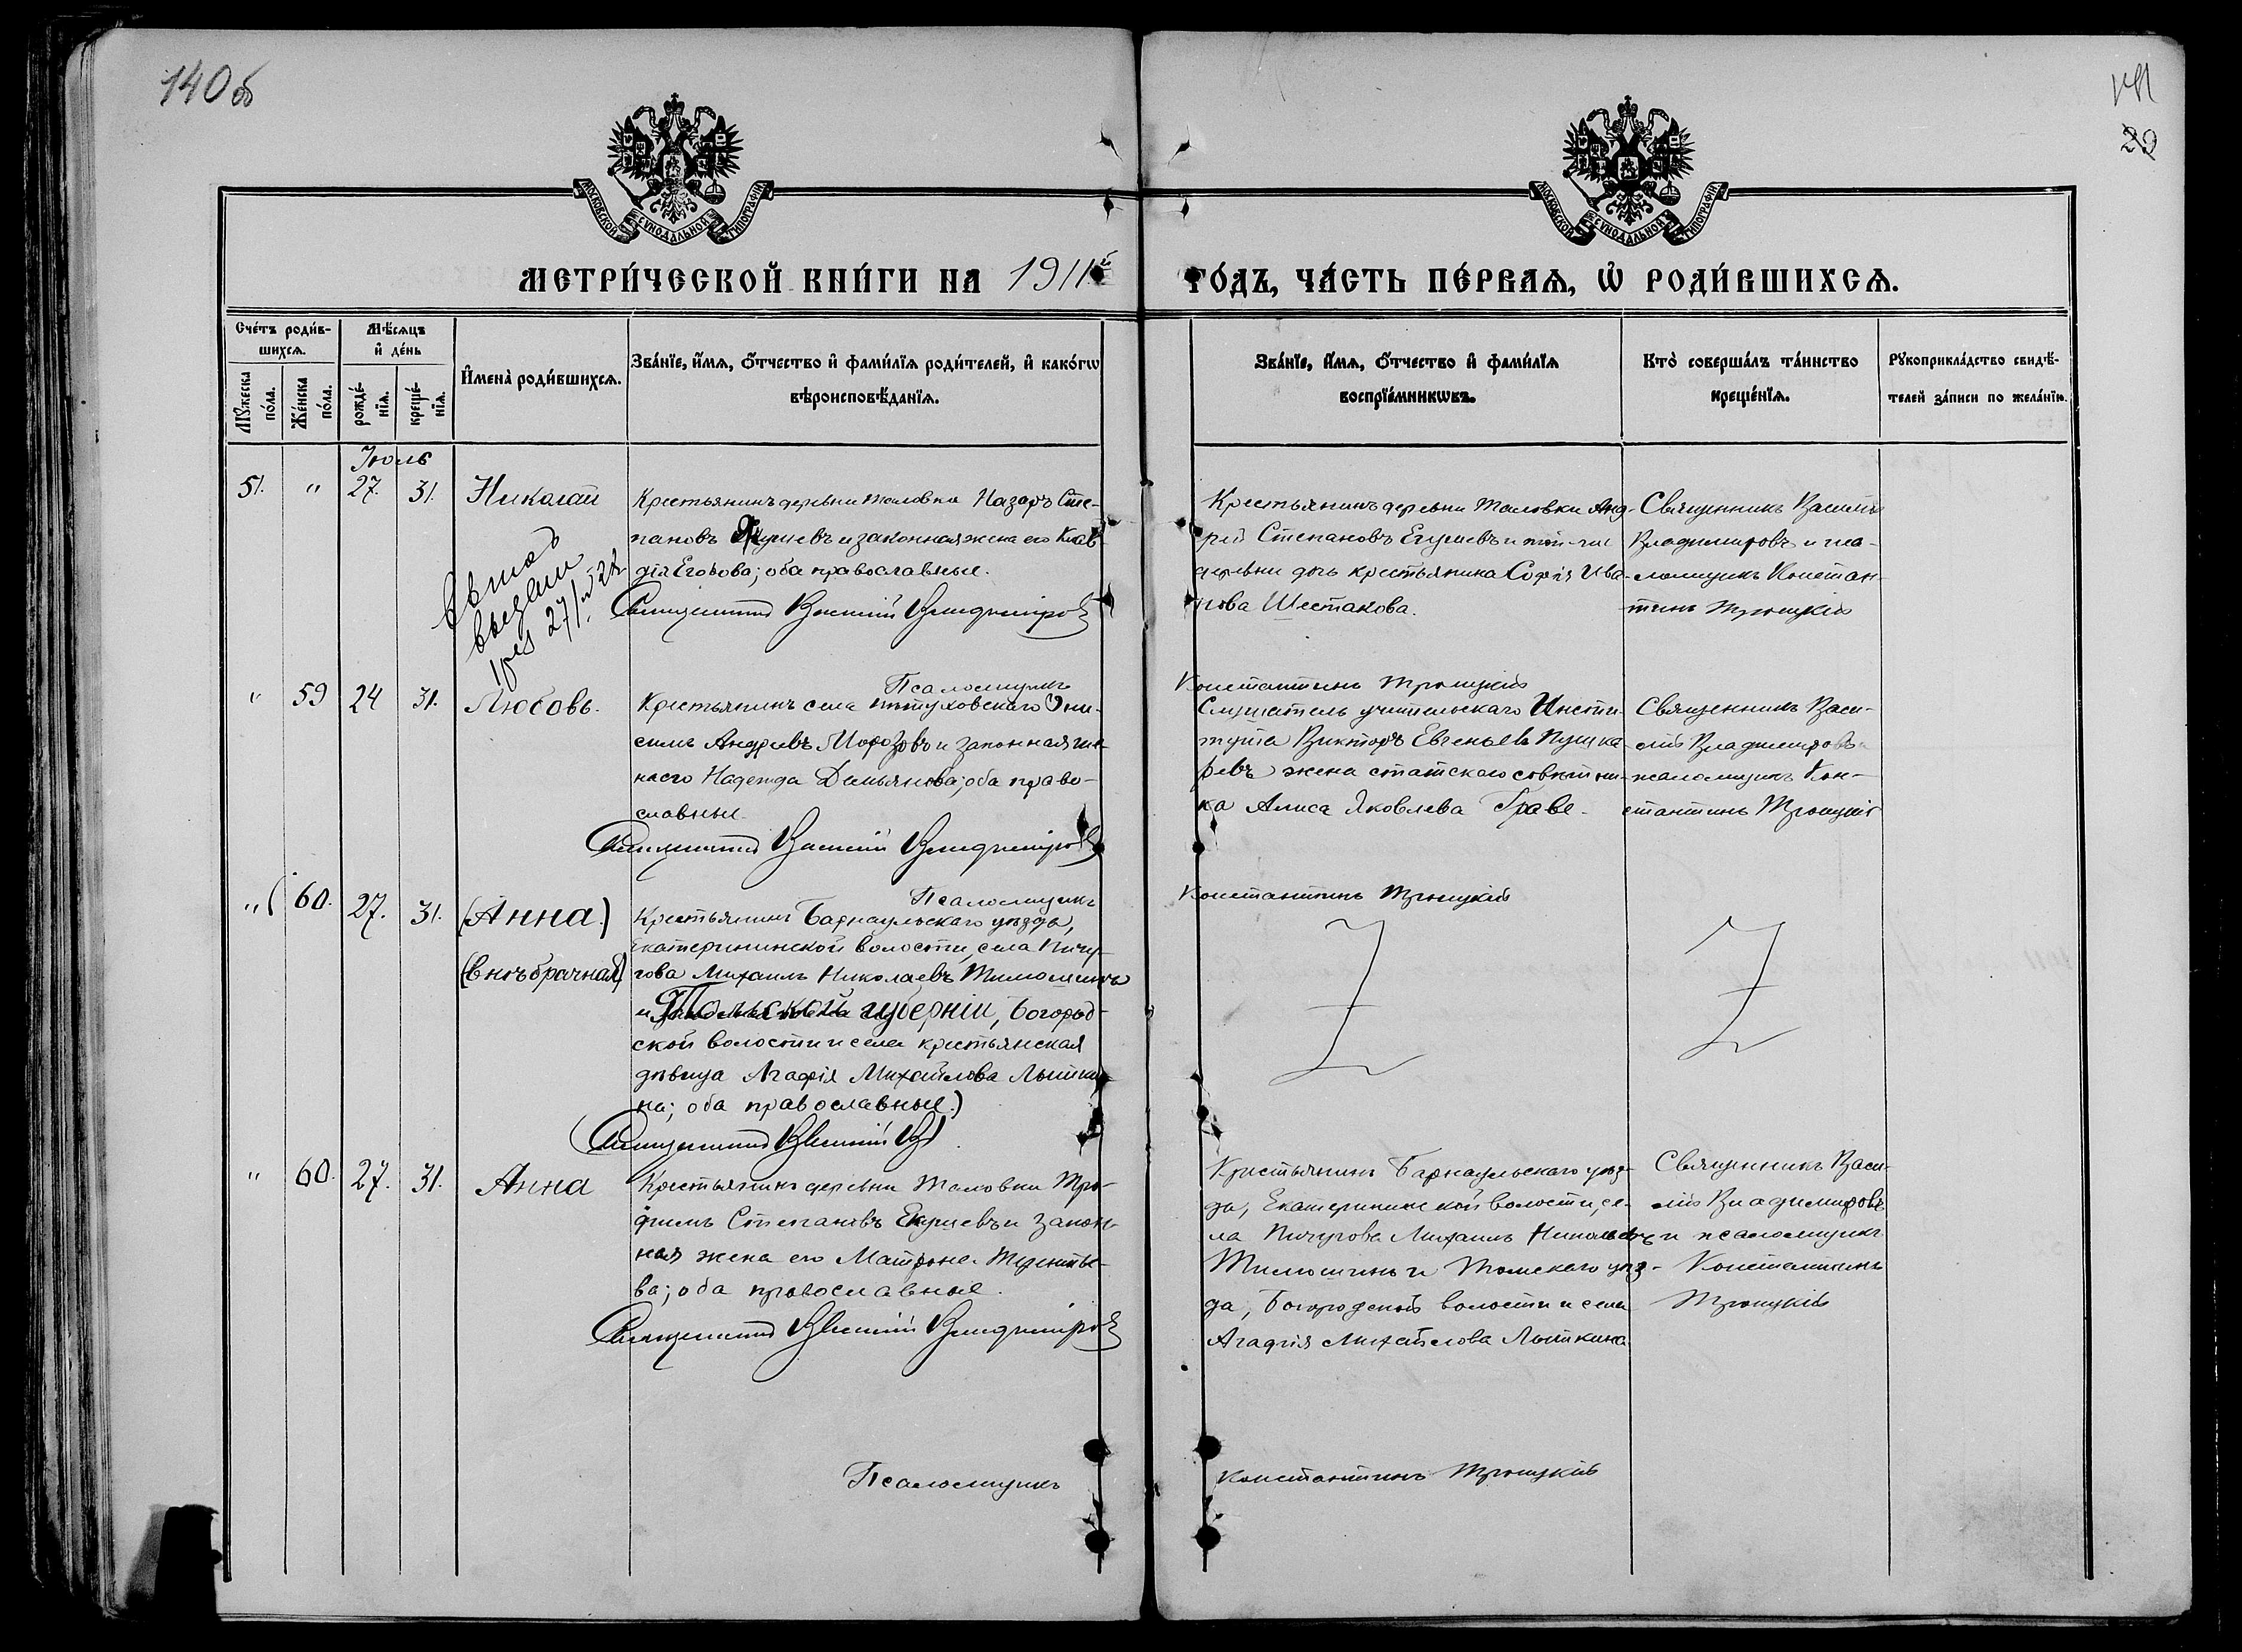 140 об
141
29
МОСКОВСКОЙ СѴНОДАЛЬНОЙ ТИПОГРАФІИ
МОСКОВСКОЙ СѴНОДАЛЬНОЙ ТИПОГРАФІИ
МЕТРИ́ЧЕСКОЙ КНИ́ГИ НА 1911й
ГО́ДЪ, ЧА́СТЬ ПЕ́РВАѦ, Ѡ҆ РОДИ́ВШИХСѦ.
Сче́тъ роди́в-
шихсѧ.
Мѣ́сѧцъ
и҆ де́нь
Мꙋ́жеска
по́ла.
Же́нска
по́ла.
рожде́-
нїѧ.
креще́-
нїѧ.
И҆мена̀ роди́вшихсѧ.
Зва́нїе, и҆́мѧ, ѻ҆́тчество и҆ фами́лїѧ роди́телей, и҆ како́гѡ
вѣроисповѣ́данїѧ.
Зва́нїе, и҆́мѧ, ѻ҆́тчество и҆ фами́лїѧ
воспрїе́мникѡвъ.
Кто̀ соверша́лъ та́инство
креще́нїѧ.
Рꙋкоприкла́дство свидѣ́-
телей за́писи по жела́нїю.
Июль
51. " 27. 31. Николай
Крестьянинъ деревни Таловки Назаръ Сте-
пановъ Екушевъ и законная жена его Клав-
дія Егорова; оба православные.
Священникъ Василій Владиміровъ
Псаломщикъ
Крестьянинъ деревни Таловки Анд-
рей Степановъ Екушевъ и той-же
деревни дочь крестьянина Софія Ива-
нова Шестакова.
Константинъ Троицкій
Священникъ Василій
Владимировъ и пса-
ломщикъ Констан-
тинъ Троицкій
выдан
" 59 24 31. Любовь.
Крестьянинъ села Пѣтуховскаго Они-
симъ Андреевъ Морозовъ и законная же-
на его Надежда Демьянова; оба право-
славные.
Священникъ Василій Владиміровъ
Псаломщикъ
Слушатель учительскаго Инсти-
тута Викторъ Евгеньевъ Пушка-
ревъ жена статскаго совѣтни-
ка Алиса Яковлева Граве.
Константинъ Троицкій
Священникъ Васи-
лій Владимировъ и
псаломщикъ Кон-
стантинъ Троицкій
" (60. 27. 31. (Анна.)
(внѣбрачная)
Крестьянинъ Барнаульскаго уѣзда,
Екатерининской волости, села Пичу-
гова Михаилъ Николаевъ Тимошинъ
и Томской губерніи, Богород-
ской волости и села крестьянская
дѣвица Агафія Михайлова Лытки-
на; оба православные.)
Священникъ Василій Вл
" 60. 27. 31. Анна
Крестьянинъ деревни Таловки Тро-
фимъ Степановъ Екушевъ и закон-
ная жена его Матрона Терентье-
ва; оба православные.
Священникъ Василій Владиміровъ
Псаломщикъ
Крестьянинъ Барнаульскаго уѣз-
да, Екатерининской волости, се-
ла Пичугова Михаилъ Николаевъ
Тимошинъ и Томскаго уѣз-
да, Богородской волости и села
Агафія Михайлова Лыткина
Константинъ Троицкій
Священникъ Васи-
лій Владимировъ
и псаломщикъ
Константинъ
Троицкій